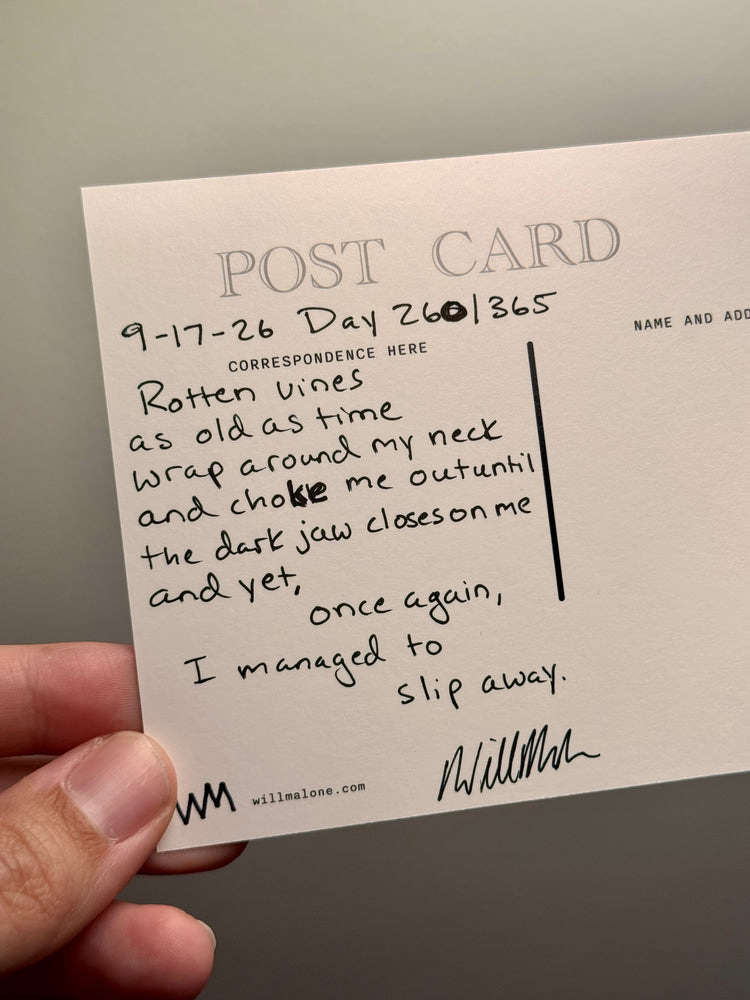 POST CARD
9-17-26 Day 260/365
CORRESPONDENCE HERE
NAME AND ADD
Rotten vines
as old as time
wrap around my neck
and choke me out until
the dark jaw closes on me
and yet,
once again,
I managed to
slip away.
WM willmalone.com